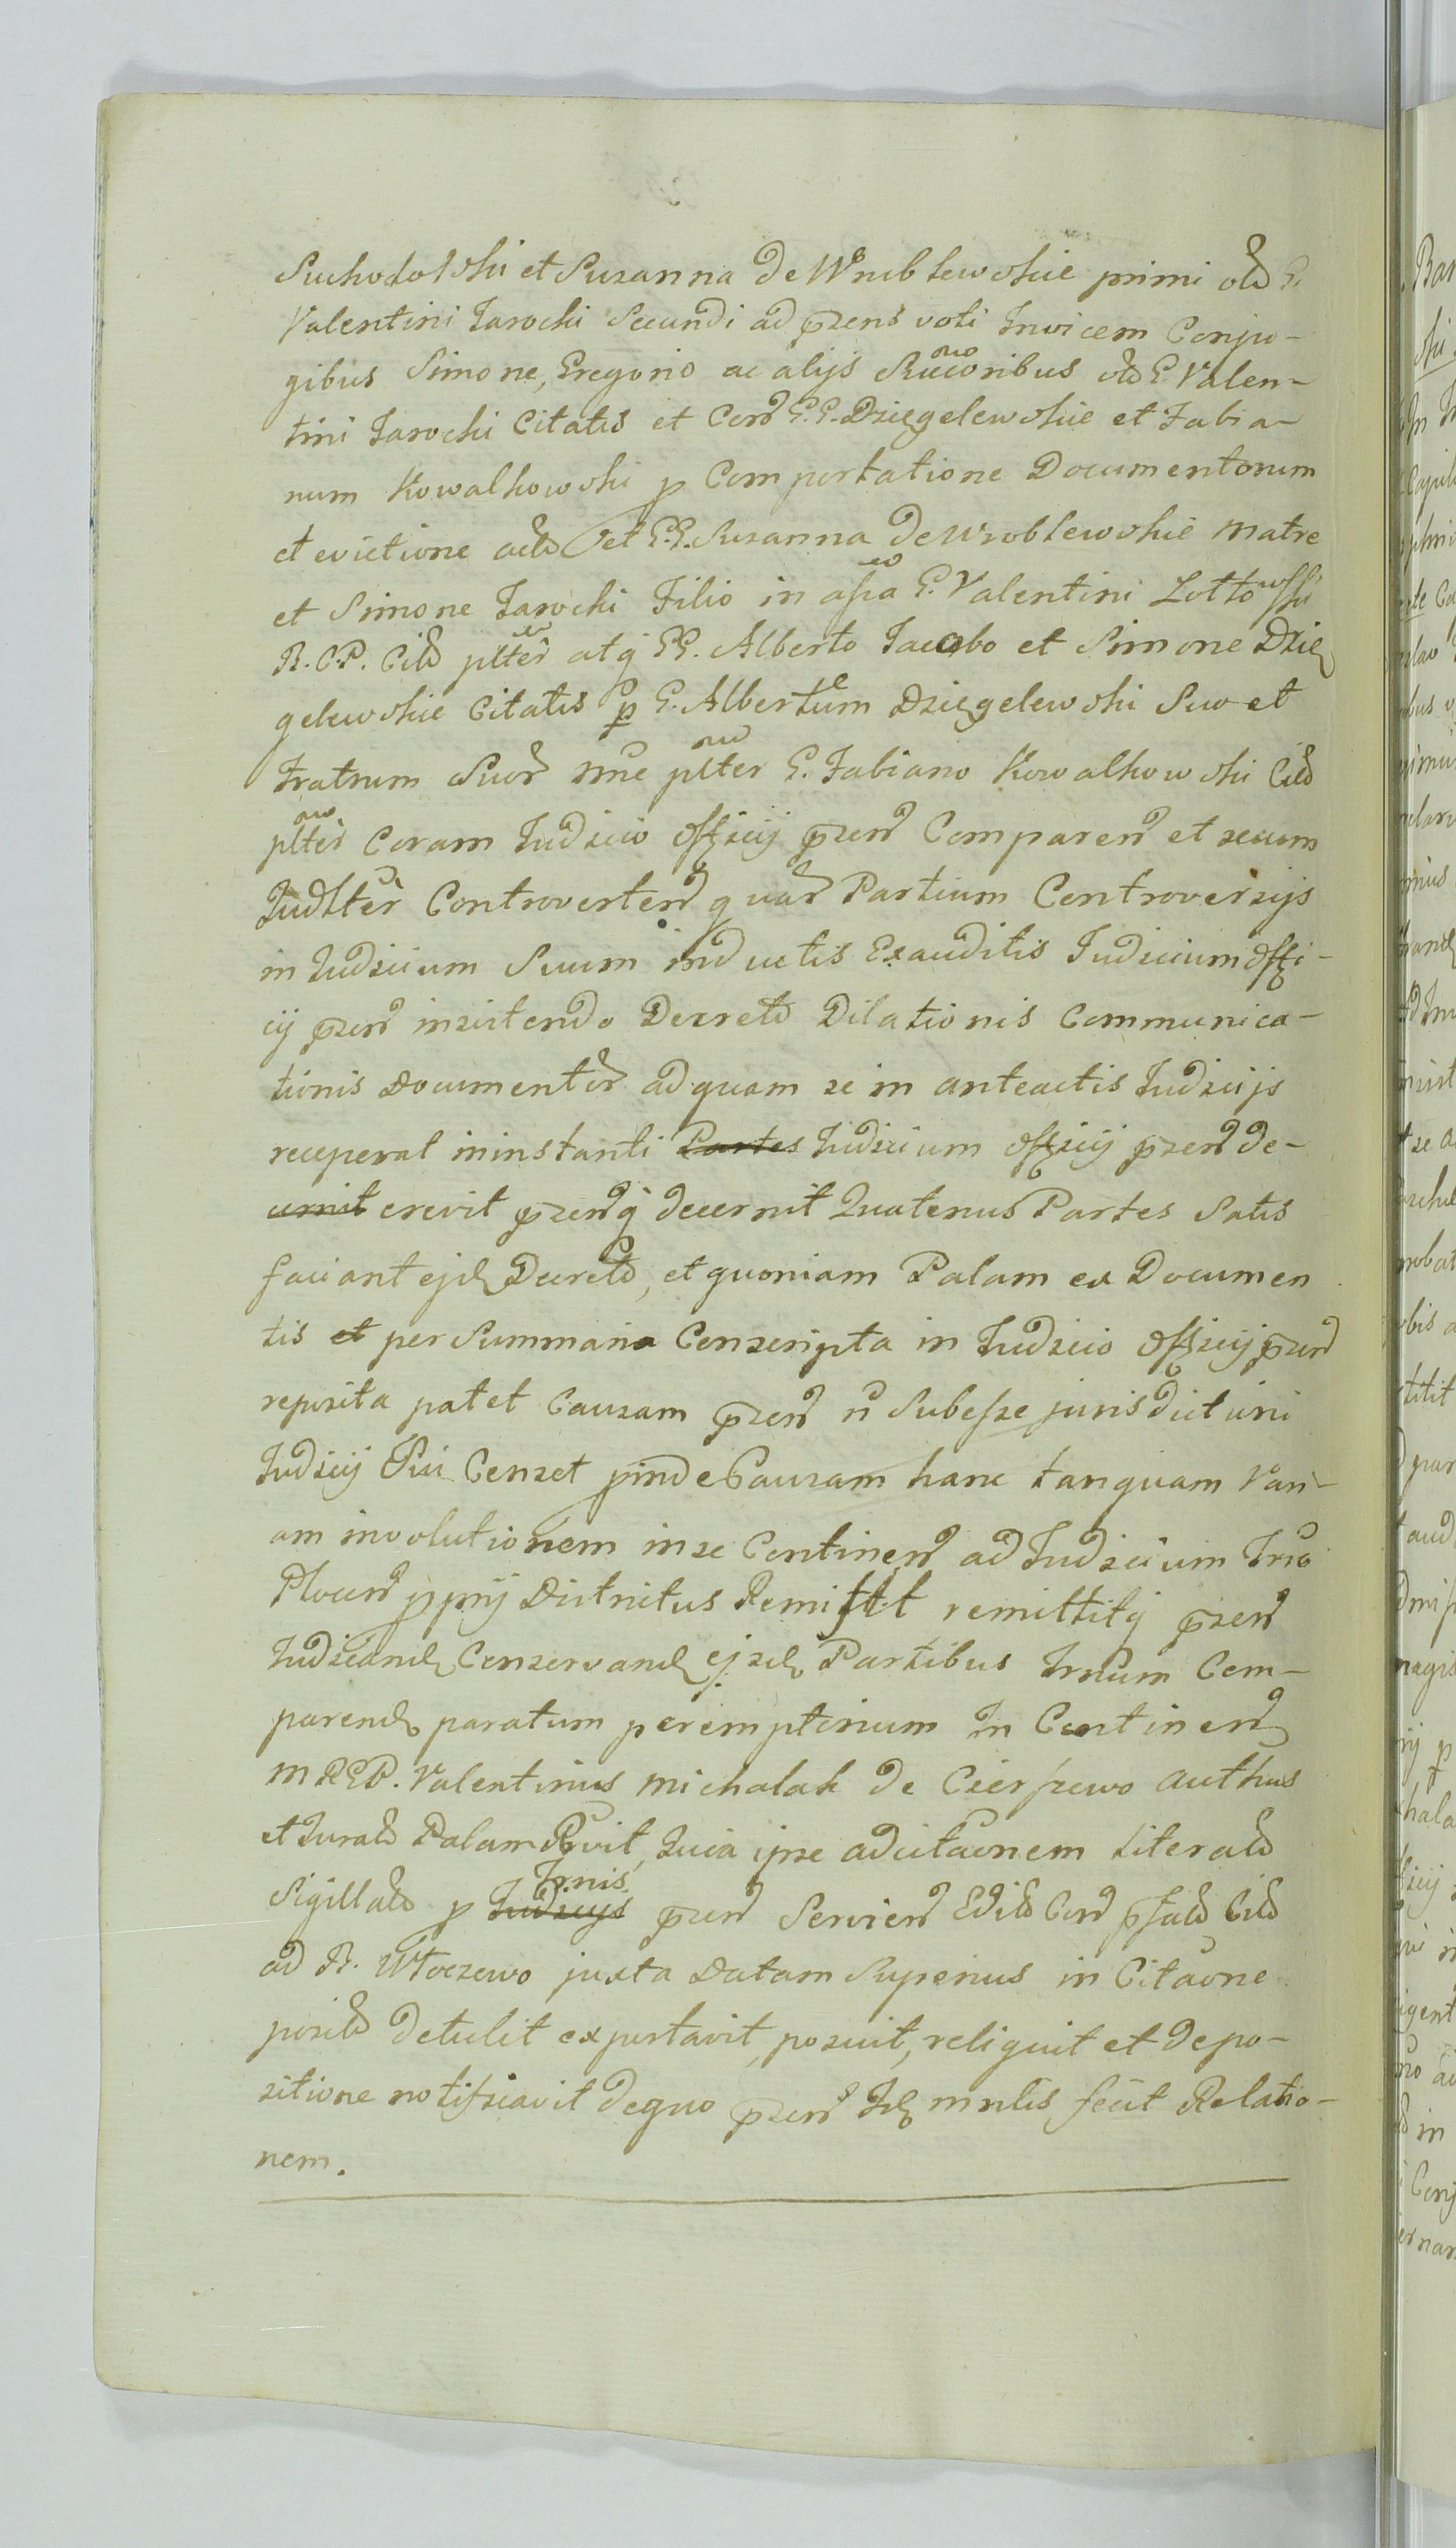 Suchodolski et Susanna de Wrublewskie primi old G.
Valentini Jarocki Secundi ad pzens voti Invicem Conju-
gibus Simone, Gregorio ac alijs Succoribus old G. Valen-
tini Jarocki Citatis et Cern G.G. Dziegelewskie et Fabia-
num Kowalkowski p Comportatione Documentorum
et evictione actd et G.G. Susanna de Wroblewskie Matre
et Simone Jarocki Filio in assa G. Valentini Lottowski
R.C.P. Citd plter atq GG. Alberto Jacobo et Simone Dzie
gelewskie Citatis p G. Albertum Dziegelewski Suo et
Fratrum Suor nne plter G. Fabiano Kowalkowski Citd
plter Coram Judicio Officij pzen Comparen et secum
Judlter Controverten quar Partium Controversijs
in Judicium Suum inductis Exauditis Judicium Offi-
cij pzen insistendo Decreto Dilationis Communica-
tionis Documentor ad quam se in anteactis Judicijs
receperat in instanti Partes Judicium Officij pzen de-
cernit crevit pzenq decernit Quatenus Partes Satis
faciant ejd Decreto, et quoniam Palam ex Documen
tis et per Summaria Conscripta in Judicio Officij pzen
reposita patet Causam pzen n Subesse jurisdictioni
Judicij Sui Censet pinde Causam hanc tanquam Vari-
am involutionem in se Continen ad Judicium Trrã
Plocen pprij Districtus Remittit remittitq pzen
Judicand Conservand ejsd Partibus Trnum Com-
parend paratum peremptorium In Continen
MRGP. Valentinus Michalak de Cierpzewo Authus
et Jurato Palam Rvit, Quia ipse ad citaonem literald
Sigillatd p Judicijs Trnis pzen Servien Edid Cern psatd Citd
ad R. Wtoczewo juxta Datam Superius in Citaone
positd Detulit exportavit, posuit, reliquit et depo-
sitione notificavit de quo pzen Id mnlis fecit Relatio-
nem.